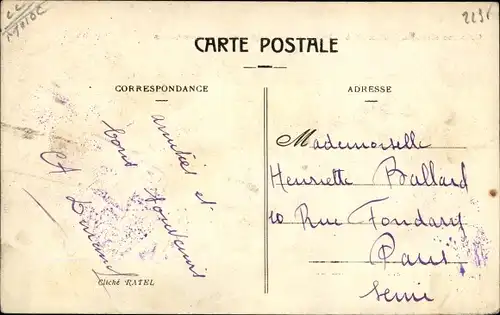 2231
CARTE POSTALE
CORRESPONDANCE
ADRESSE
amitiés et
bons souvenirs
A Durand
Mademoiselle
Henriette Ballard
10 Rue Fondary
Paris
Seine
Cliché RATEL